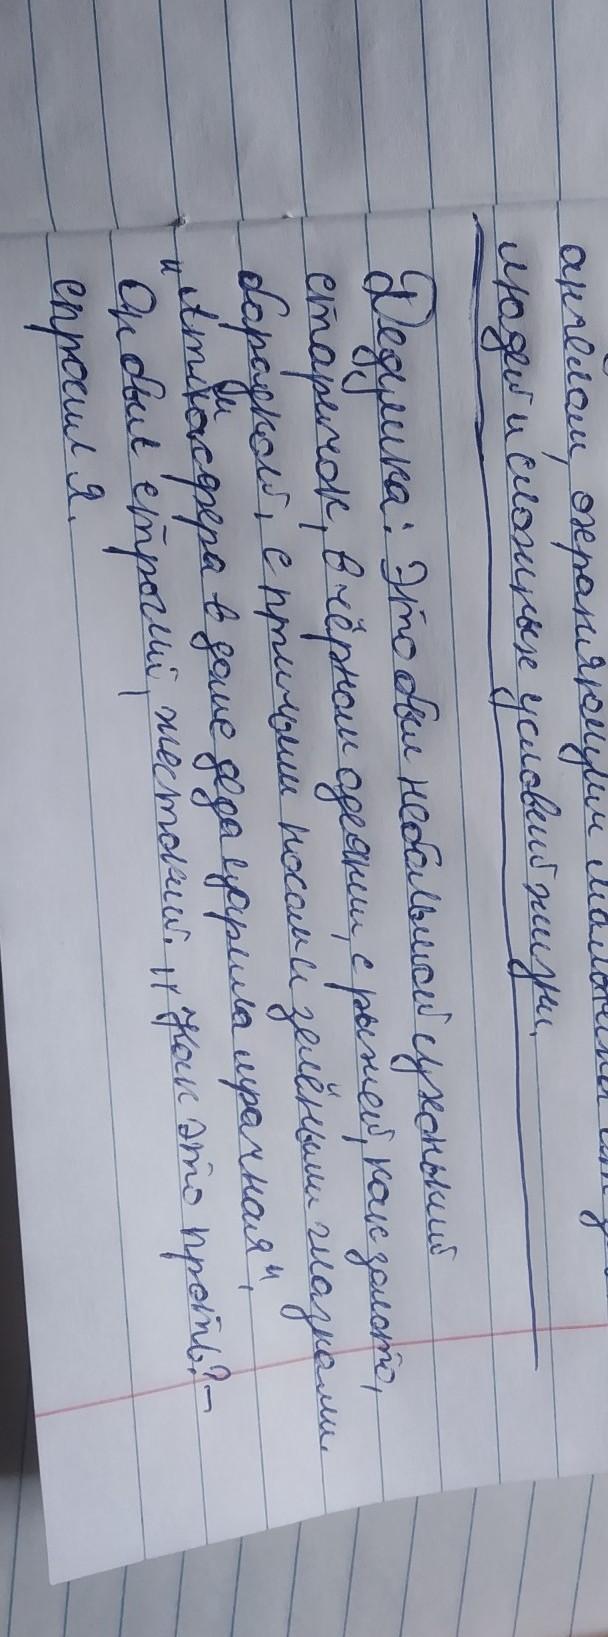 ангелом, охраняющим
людей и сложных условий жизни.
Дедушка: Это был небольшой сухонький
старичок, в чёрном одеянии, с рыжей, как золото,
бородкой, с птичьим носом и зелёными глазками.
"Атмосфера в доме деда царила мрачная",
Он был строгий, жестокий. "Как это прость? –
спросил я.